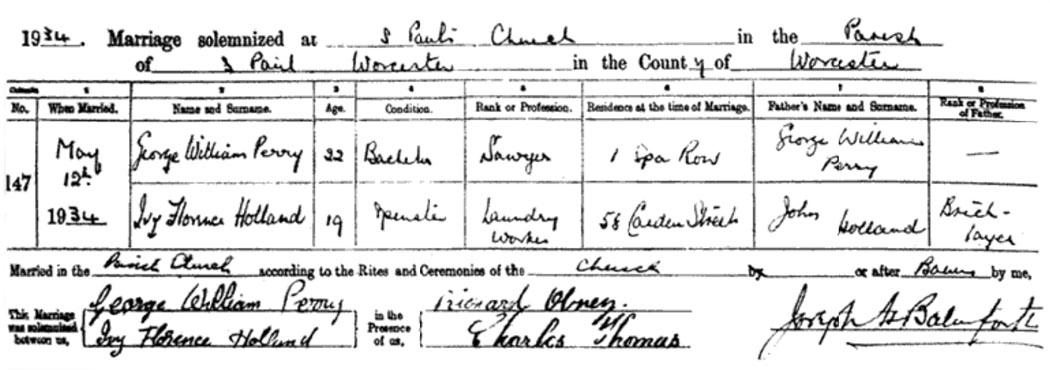 1934. Marriage solemnized at S Paul's Church in the Parish
of S Paul Worcester in the County of Worcester
Columns 1 2 3 4 5 6 7 8
No. When Married. Name and Surname. Age. Condition. Rank or Profession. Residence at the time of Marriage. Father's Name and Surname. Rank or Profession of Father.
147 May 12th 1934 George William Perry 22 Bachelor Sawyer 1 Spa Row George William Perry —
Ivy Florence Holland 19 Spinster Laundry Worker 58 Carden Street John Holland Brick-layer
Married in the Parish Church according to the Rites and Ceremonies of the Church by or after Banns by me,
This Marriage was solemnized between us, George William Perry
Ivy Florence Holland
in the Presence of us, Richard
Charles Thomas
Joseph